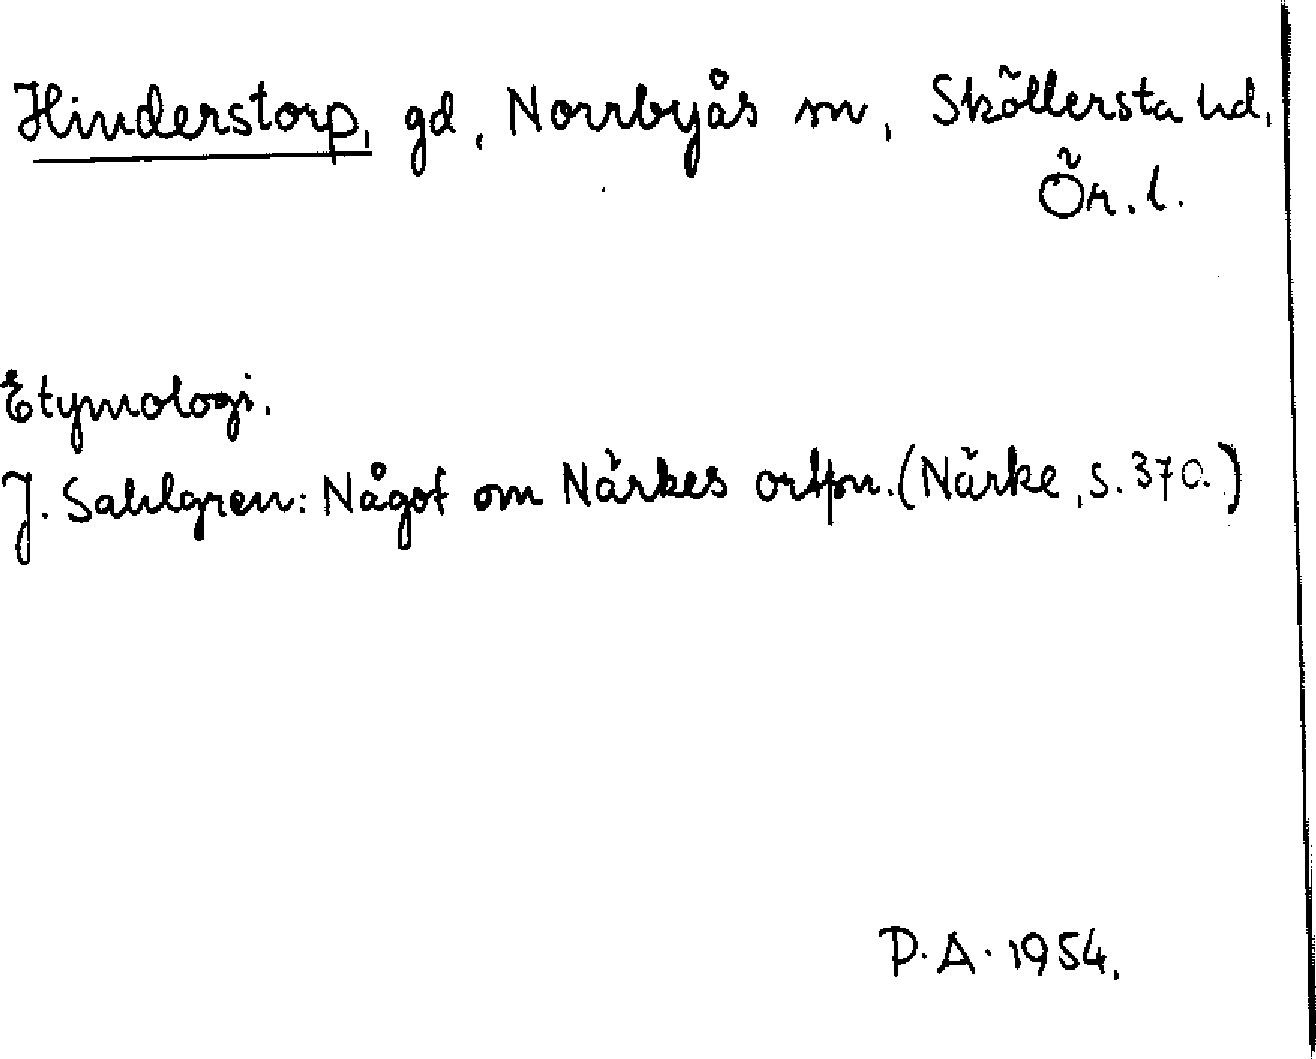 Hinderstorp, gd, Norrbyås sn, Sköllersta hd,
Ör. l.
Etymologi.
J. Sahlgren: Något om Närkes ortsn. (Närke, s. 370.)
P. A. 1954.